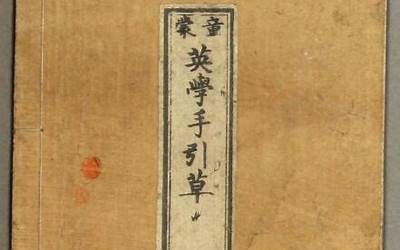 童蒙
英學手引草